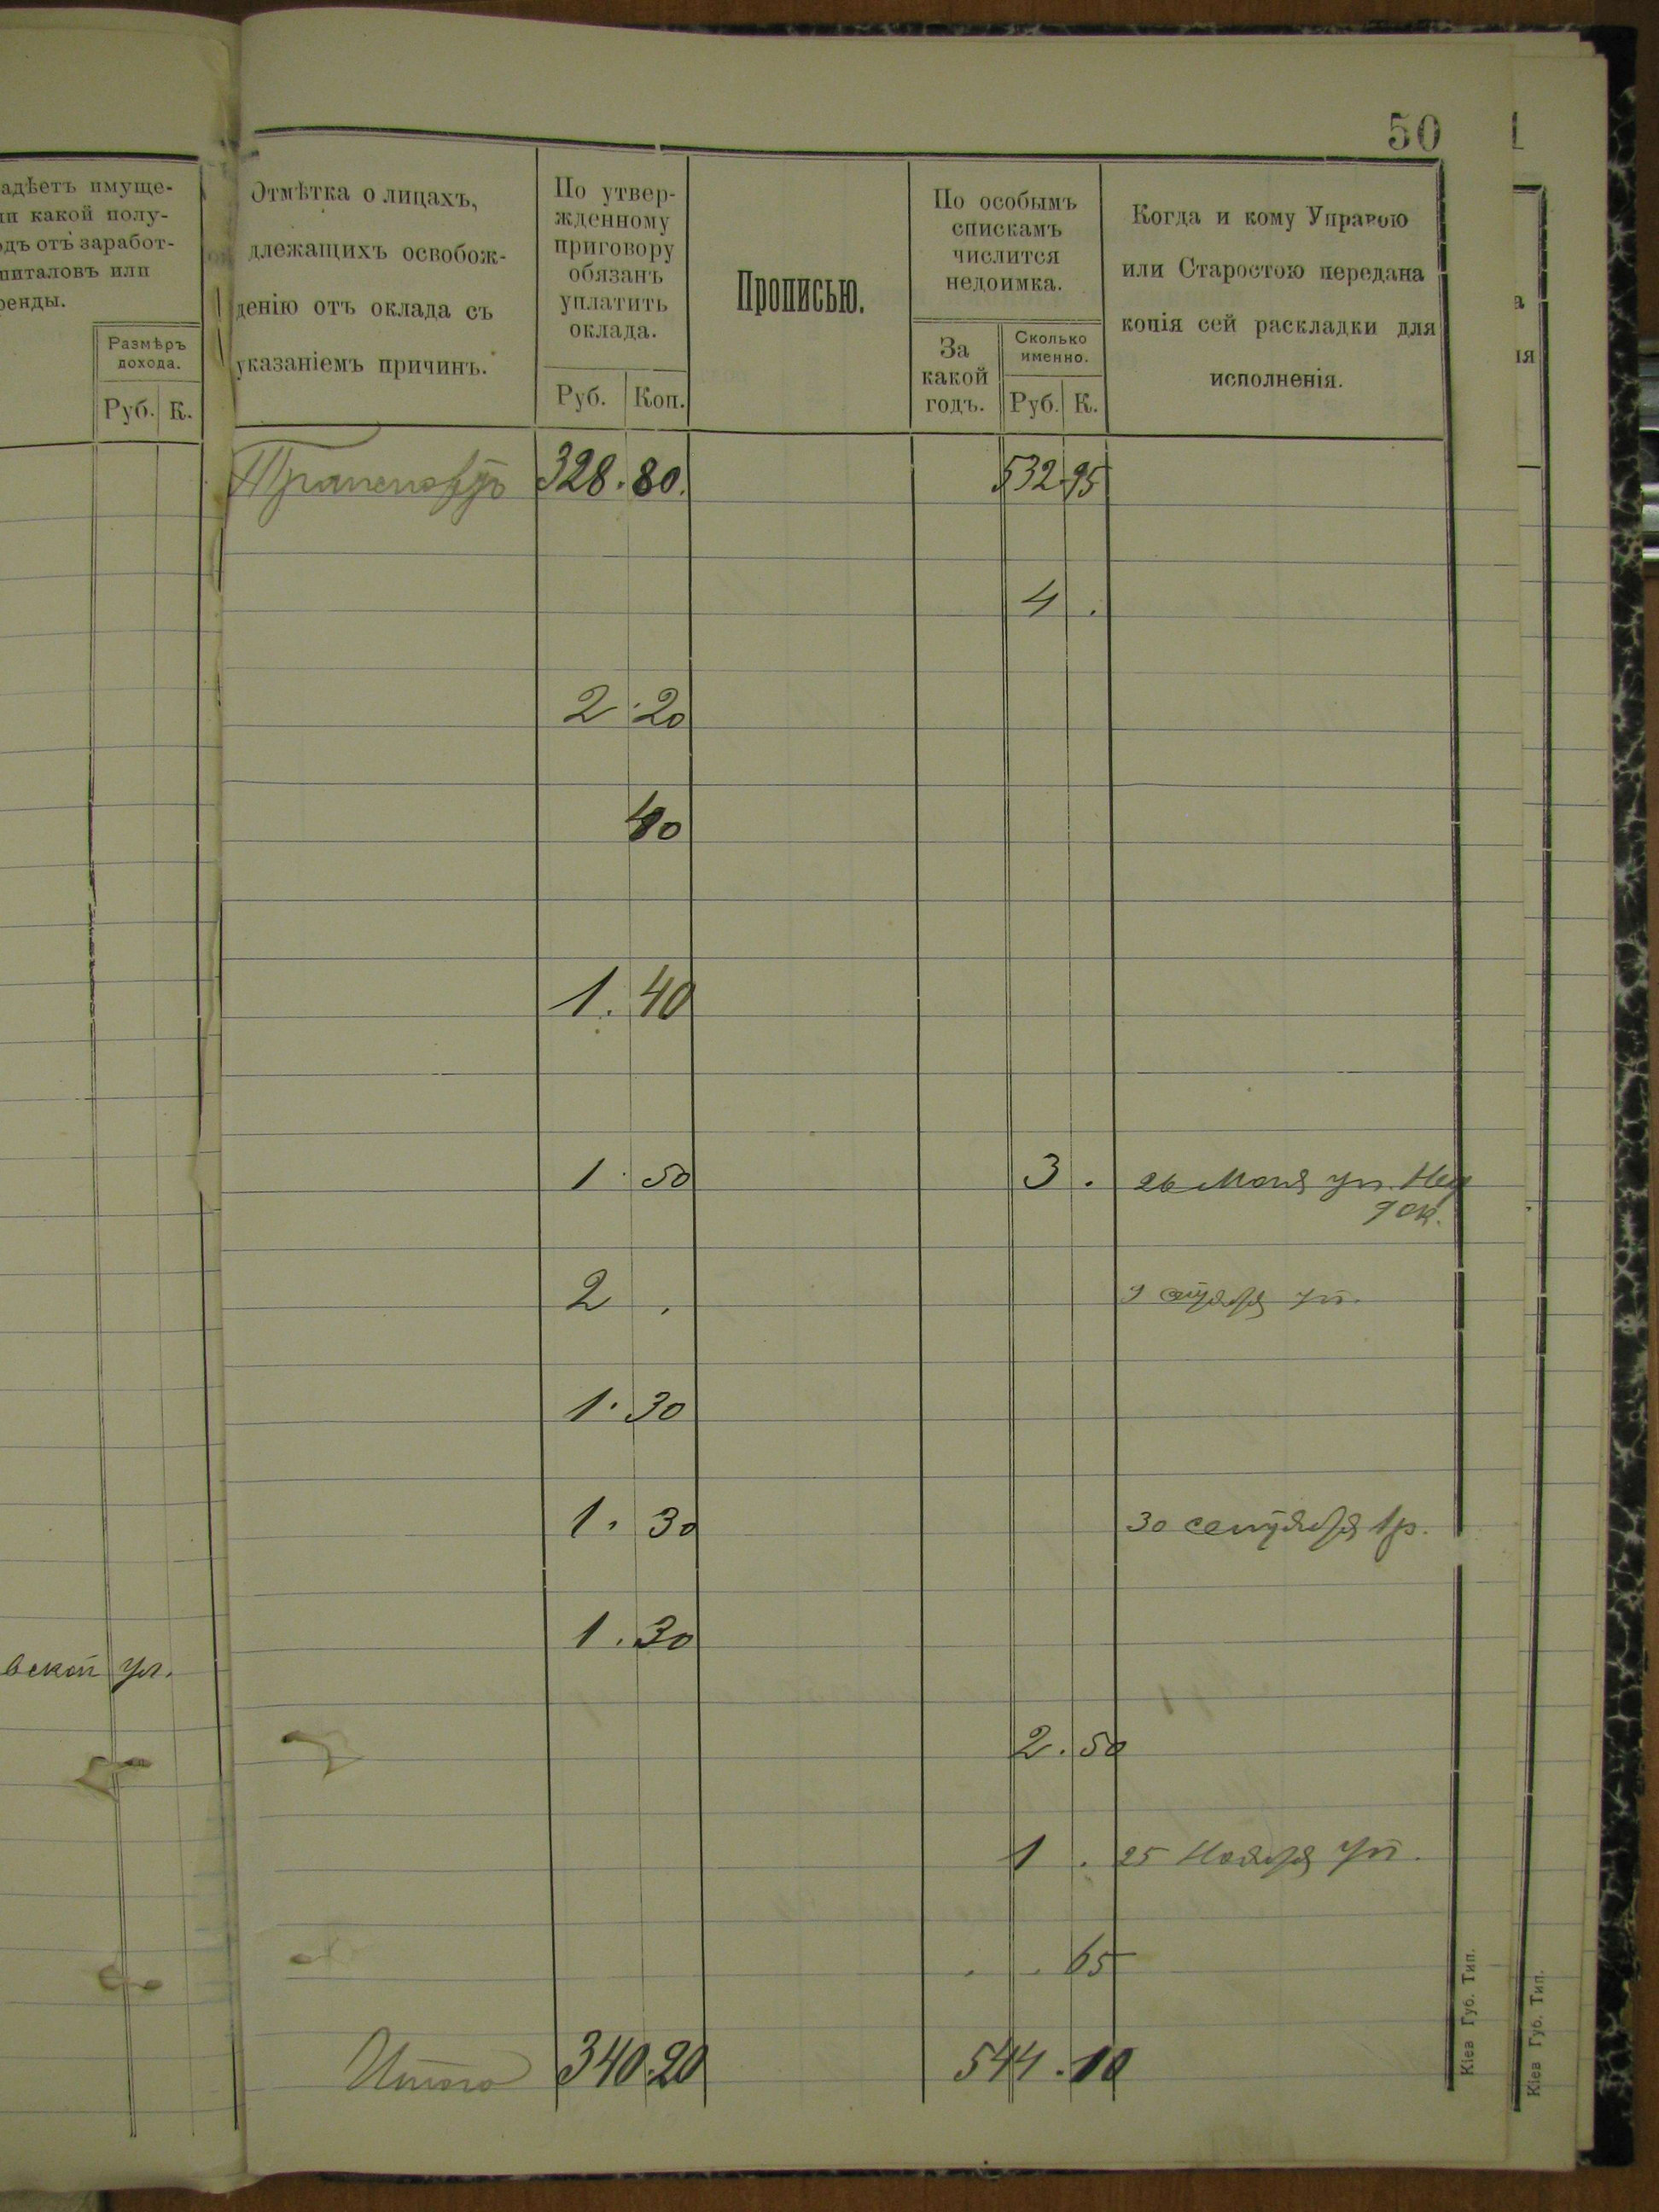 50
адѣетъ имуще-
ли какой полу-
одъ отъ заработ-
питаловъ или
ренды.
Размѣръ дохода.
Руб. К.
Отмѣтка о лицахъ,
длежащихъ освобож-
денію отъ оклада съ
указаніемъ причинъ.
По утвер-
жденному
приговору
обязанъ
уплатить
оклада.
Руб. Коп.
Прописью.
По особымъ
спискамъ
числится
недоимка.
За
какой
годъ.
Сколько
именно.
Руб. К.
Когда и кому Управою
или Старостою передана
копія сей раскладки для
исполненія.
Транспортъ 328. 80. 532 95
4 .
2 20
40
1. 40
1 50 3 . 26 Мая уп.
2 . 9 уп.
1. 30
1. 30 30 сентября 1р.
1. 30
вской ул.
2. 50
1 . 25 Ноября уп.
. . 65
Итого 340. 20 544. 10
Кіев Губ. Тип.
Кіев Губ. Тип.